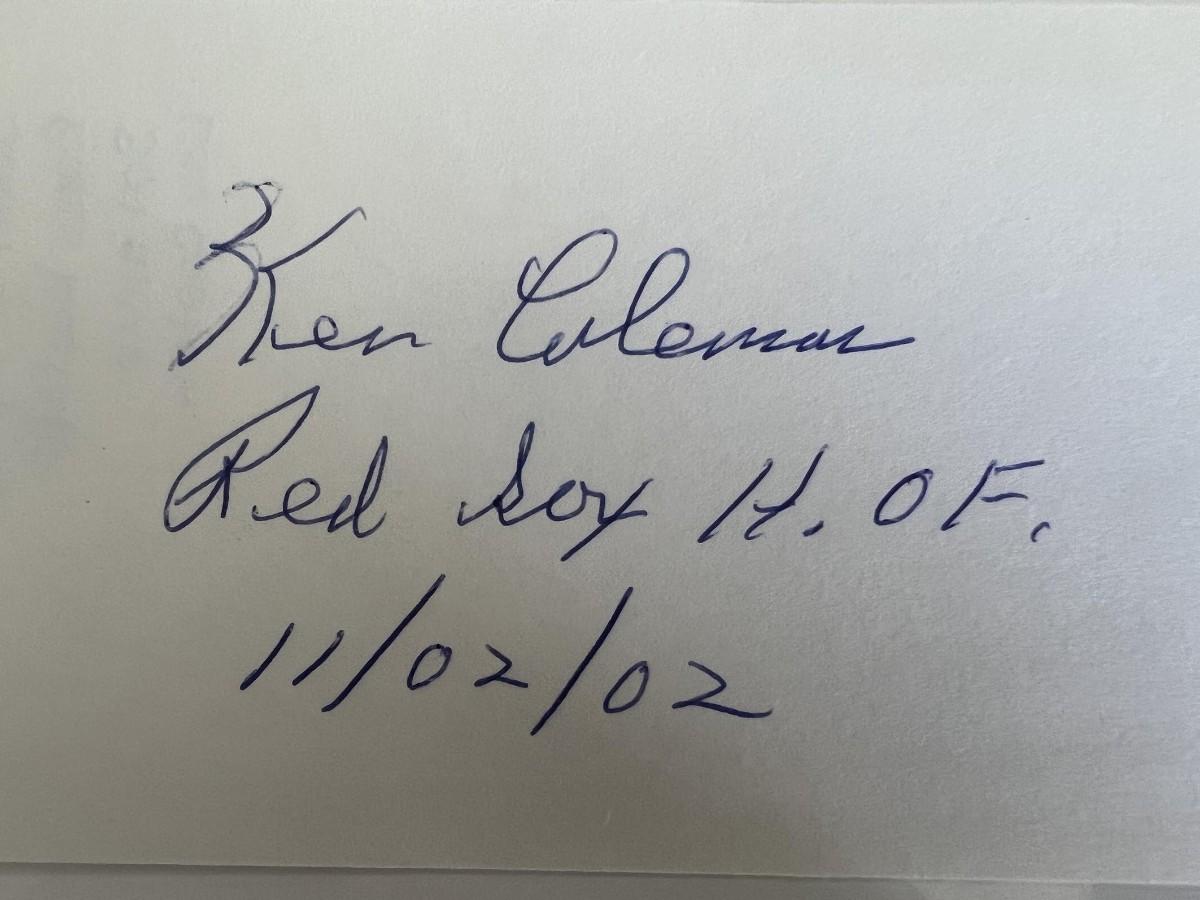 Ken Coleman
Red Sox H. O F.
11/02/02